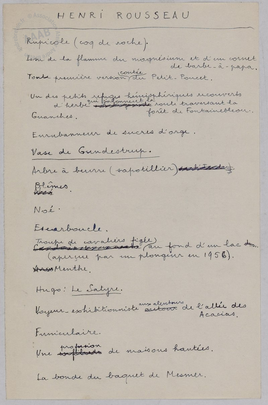 HENRI ROUSSEAU
Rupicole (coq de roche).
Lien de la flamme du magnésium et d'un cornet
de barbe-à-papa.
Toute première version contée du Petit-Poucet.
Un des petits refuges hémisphériques recouverts
d'herbe qui jalonnent la route traversant la
forêt de Fontainebleau.
Guanches.
Enrubanneur de sucres d'orge.
Vase de Gundestrup.
Arbre à beurre (sapotillier)
Blêmes
Noé.
Escarboucle.
Troupe de cavaliers figée au fond d'un lac
(aperçue par un plongeur en 1956).
Menthe.
Hugo: Le Satyre.
Voyeur-exhibitionniste aux alentours de l'allée des
Acacias.
Funiculaire.
Une profusion de maisons hantées.
La bonde du baquet de Mesmer.